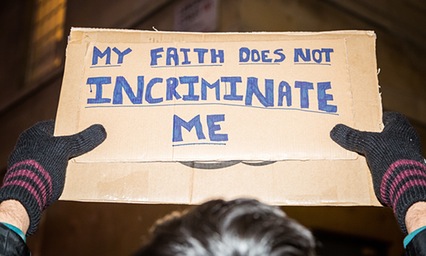 MY FAITH DOES NOT
INCRIMINATE
ME